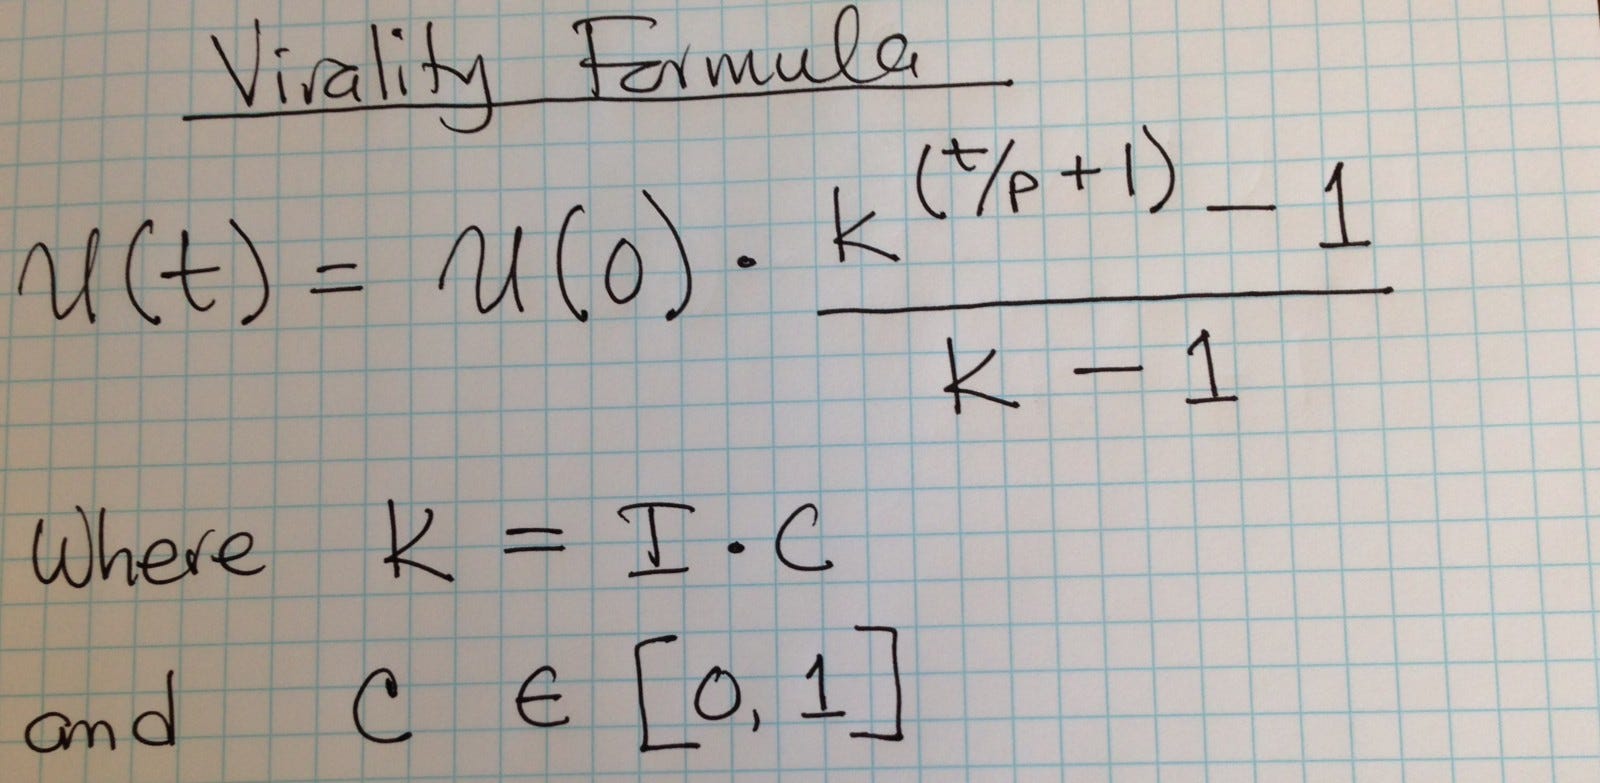 Virality Formula
u(t) = u(0) · (k^(t/p + 1) - 1) / (k - 1)
Where K = I · C
and C ∈ [0, 1]